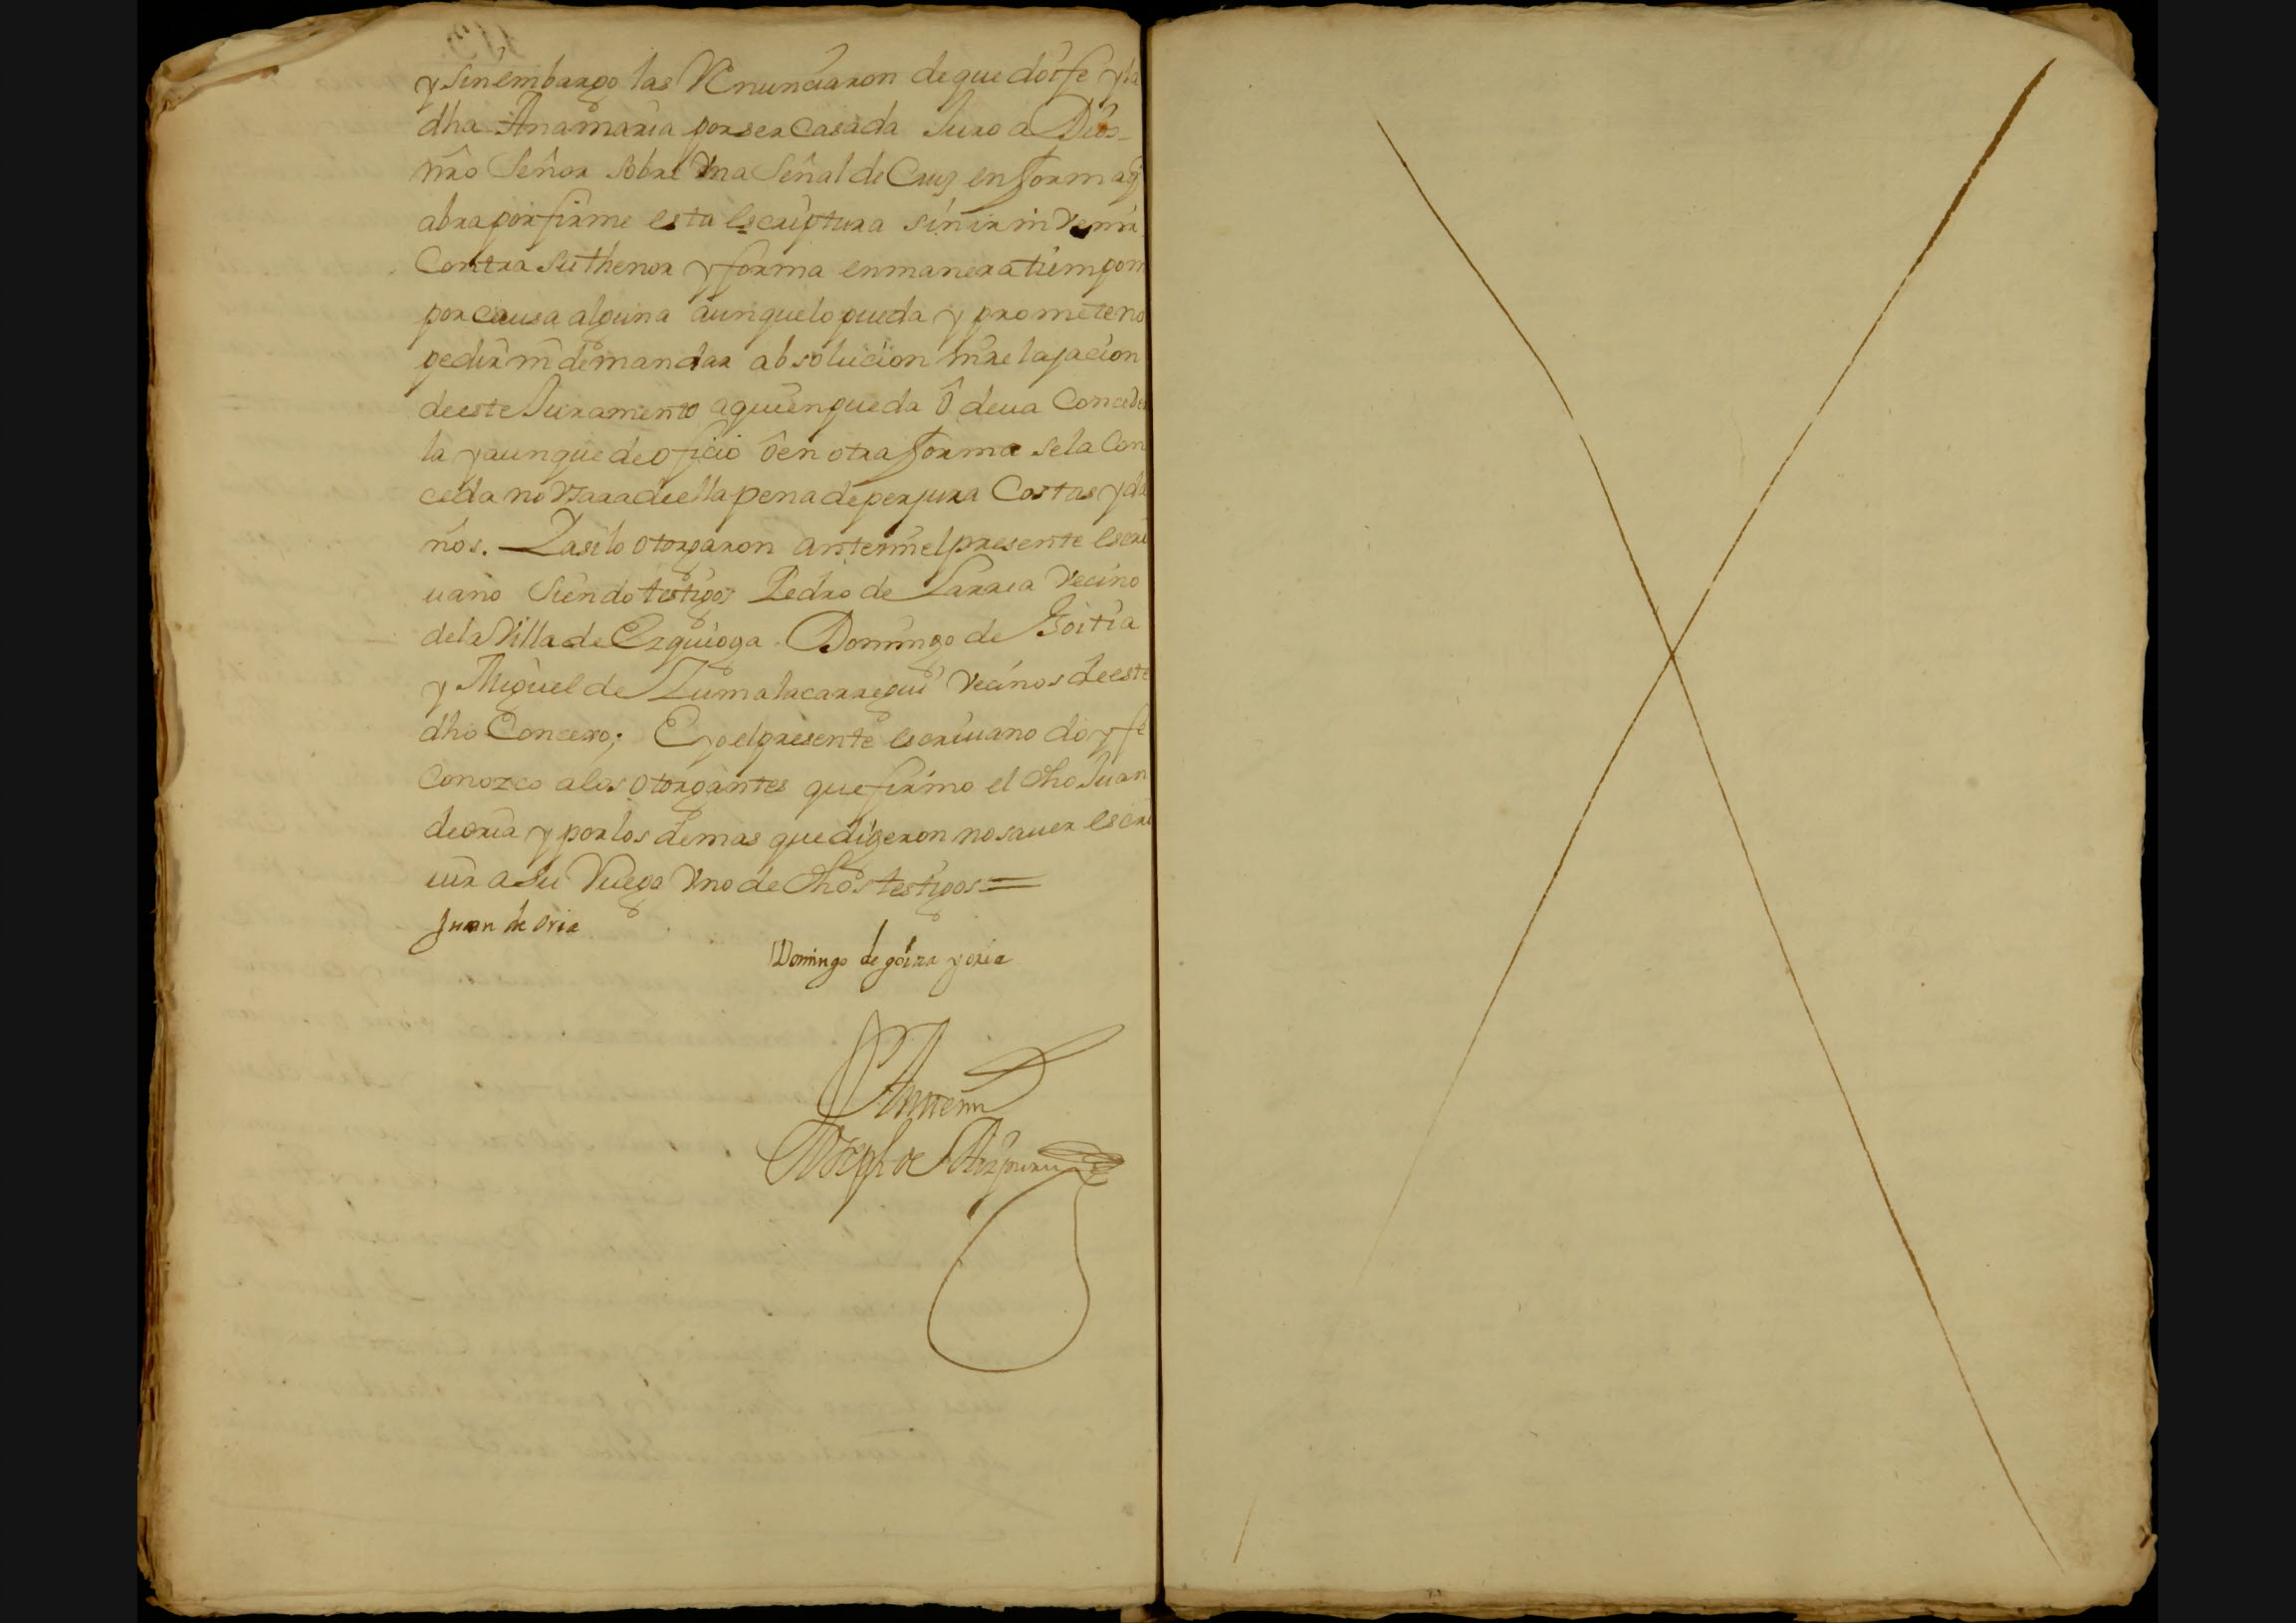 y sin embargo las Renunciaron de que doi fe y la
dha Ana maria por ser Casada Juro a Dios
nrõ Señor sobre Vna Señal de Cruz en forma q̃
abra por firme esta escriptura sin ir ni venir
Contra su thenor y forma en manera tiempo ni
por causa alguna aunque lo pueda y promete no
pedir ni demandar absolucion ni relajacion
de este Juramento a quien pueda ô deua Conceder
la y aunque de oficio ô en otra forma se la Con
ceda no Vsara de ella pena de perjura Costas y da
ños. Y asi lo otorgaron ante mi el presente escri
uano siendo testigos Pedro de Larrea Vecino
de la Villa de Ezquioga. Domingo de Goitia
y Miguel de Zumalacarregui Vecinos de este
dho Concejo; E yo el presente escriuano doy fe
Conozco a los otorgantes que firmo el dho Juan
de oria y por los demas que digeron no sauer escri
uir a su Ruego Vno de dhos testigos =
Juan de oria
Domingo de goitia y oria
Ante mi
Joseph de Aizpuru